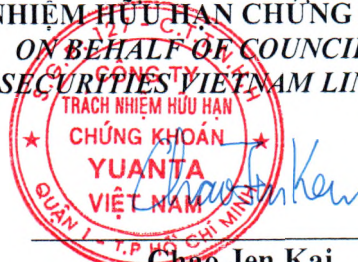 NHIỆM HỮU HẠN CHỨNG
ON BEHALF OF COUNCI
SECURITIES VIETNAM LIN
CÔNG TY
TRÁCH NHIỆM HỮU HẠN
CHỨNG KHOÁN
YUANTA
VIỆT NAM
QUẬN 1 - T.P HỒ CHÍ MINH
Chao Jen Kai